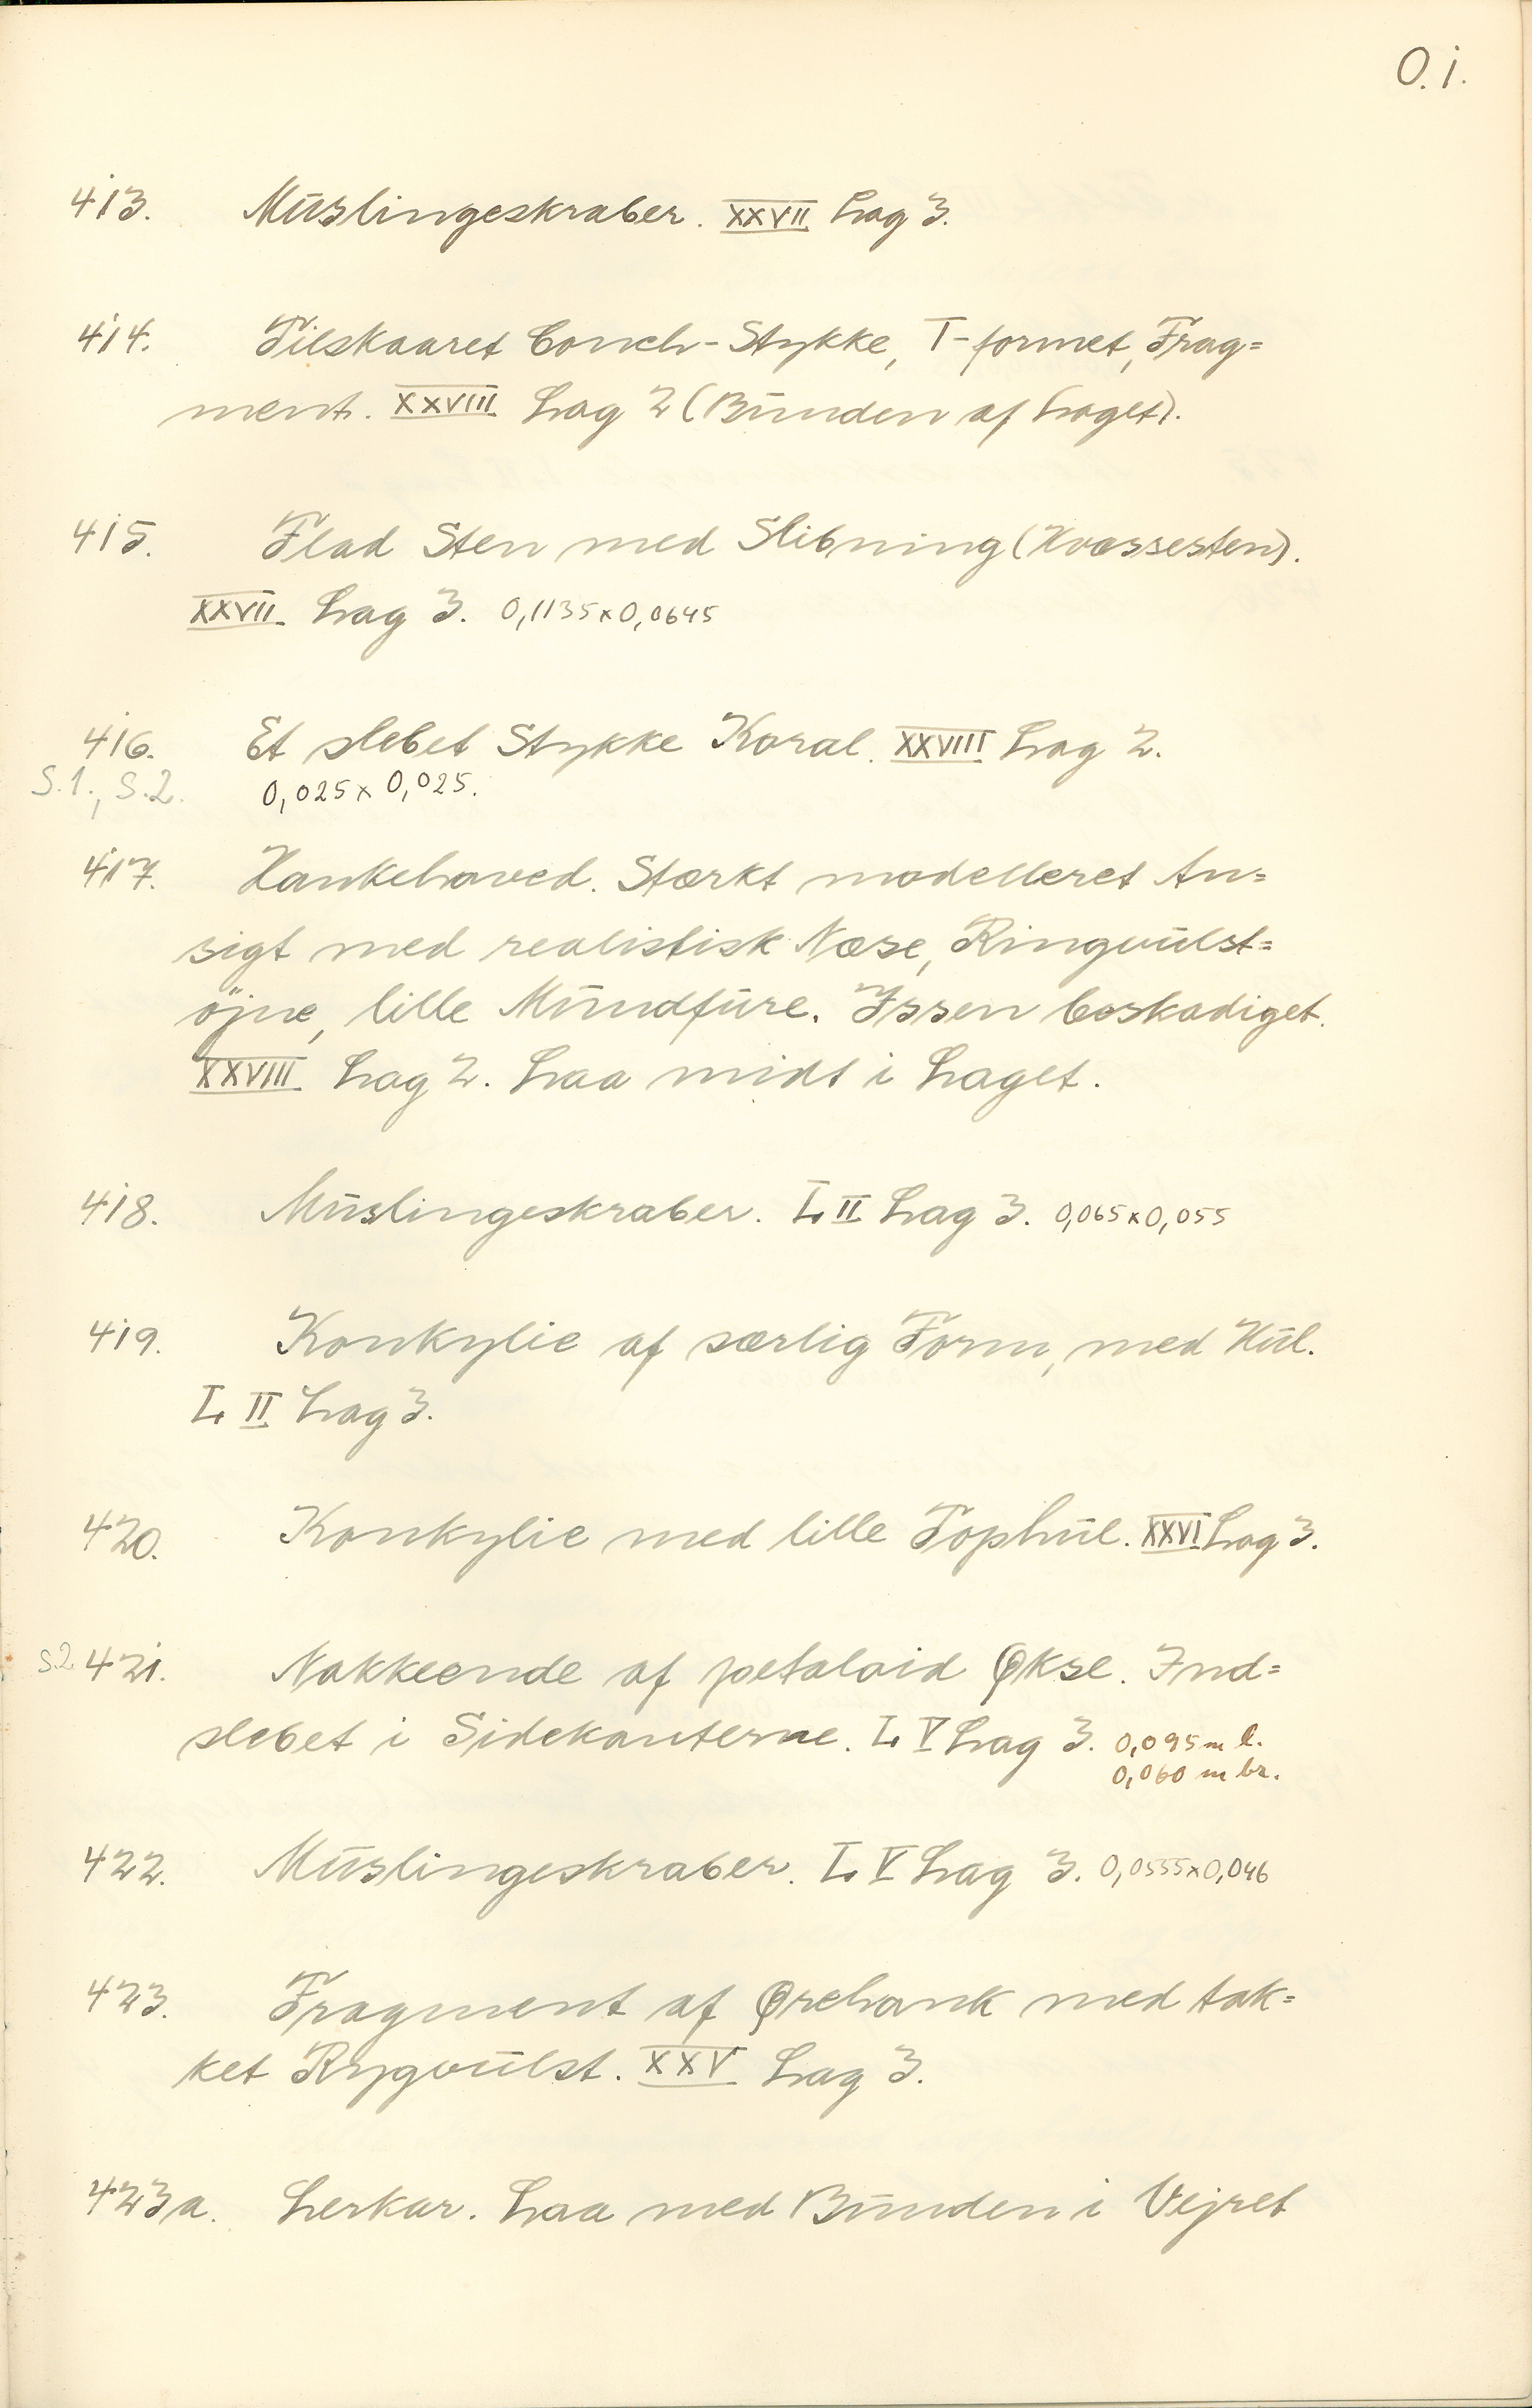 O.1.
413. Muslingeskraber. XXVII Lag 3.
414. Tilskaaret Conch-Stykke, T-formet, Frag=
ment. XXVIII Lag 2 (Bunden af Laget).
415. Flad Sten med Slibning (Hvæssesten).
XXVII Lag 3. 0,1135x0,0645
416. Et slebet Stykke Koral. XXVIII Lag 2.
S.1., S.2. 0,025x0,025.
417. Hankehoved. Stærkt modelleret An=
sigt med realistisk Næse, Ringvulst=
öjne, lille Mundfure. Issen beskadiget.
XXVIII Lag 2. Laa midt i Laget.
418. Muslingeskraber. L. II Lag 3. 0,065x0,055
419. Konkylie af særlig Form, med Hul.
L. II Lag 3.
420. Konkylie med lille Tophul. XXVI Lag 3.
S.2 421. Nakkeende af petaloid Økse. Ind=
slebet i Sidekanterne. L. V Lag 3. 0,095 m l.
0,060 m br.
422. Muslingeskraber. L. V Lag 3. 0,0555x0,046
423. Fragment af Ørehank med tak=
ket Rygvulst. XXV Lag 3.
423a. Lerkar. Laa med Bunden i Vejret